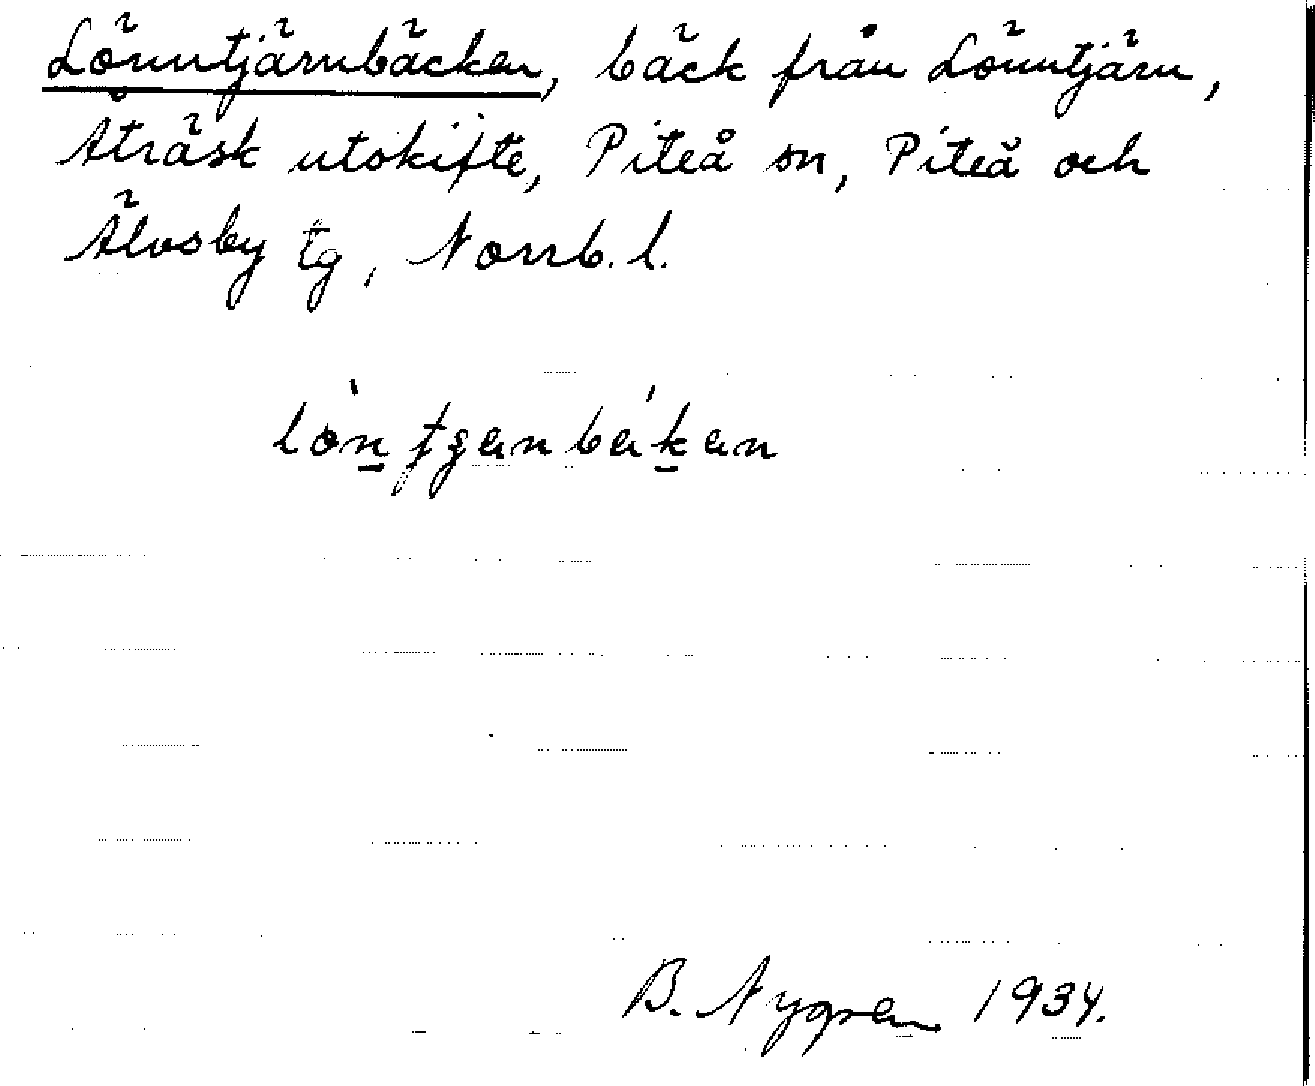 Lönntjärnbäcken, bäck från Lönntjärn,
Åträsk utskifte, Piteå sn, Piteå och
Älvsby tg, Norrb. l.
B. Nygren 1934.